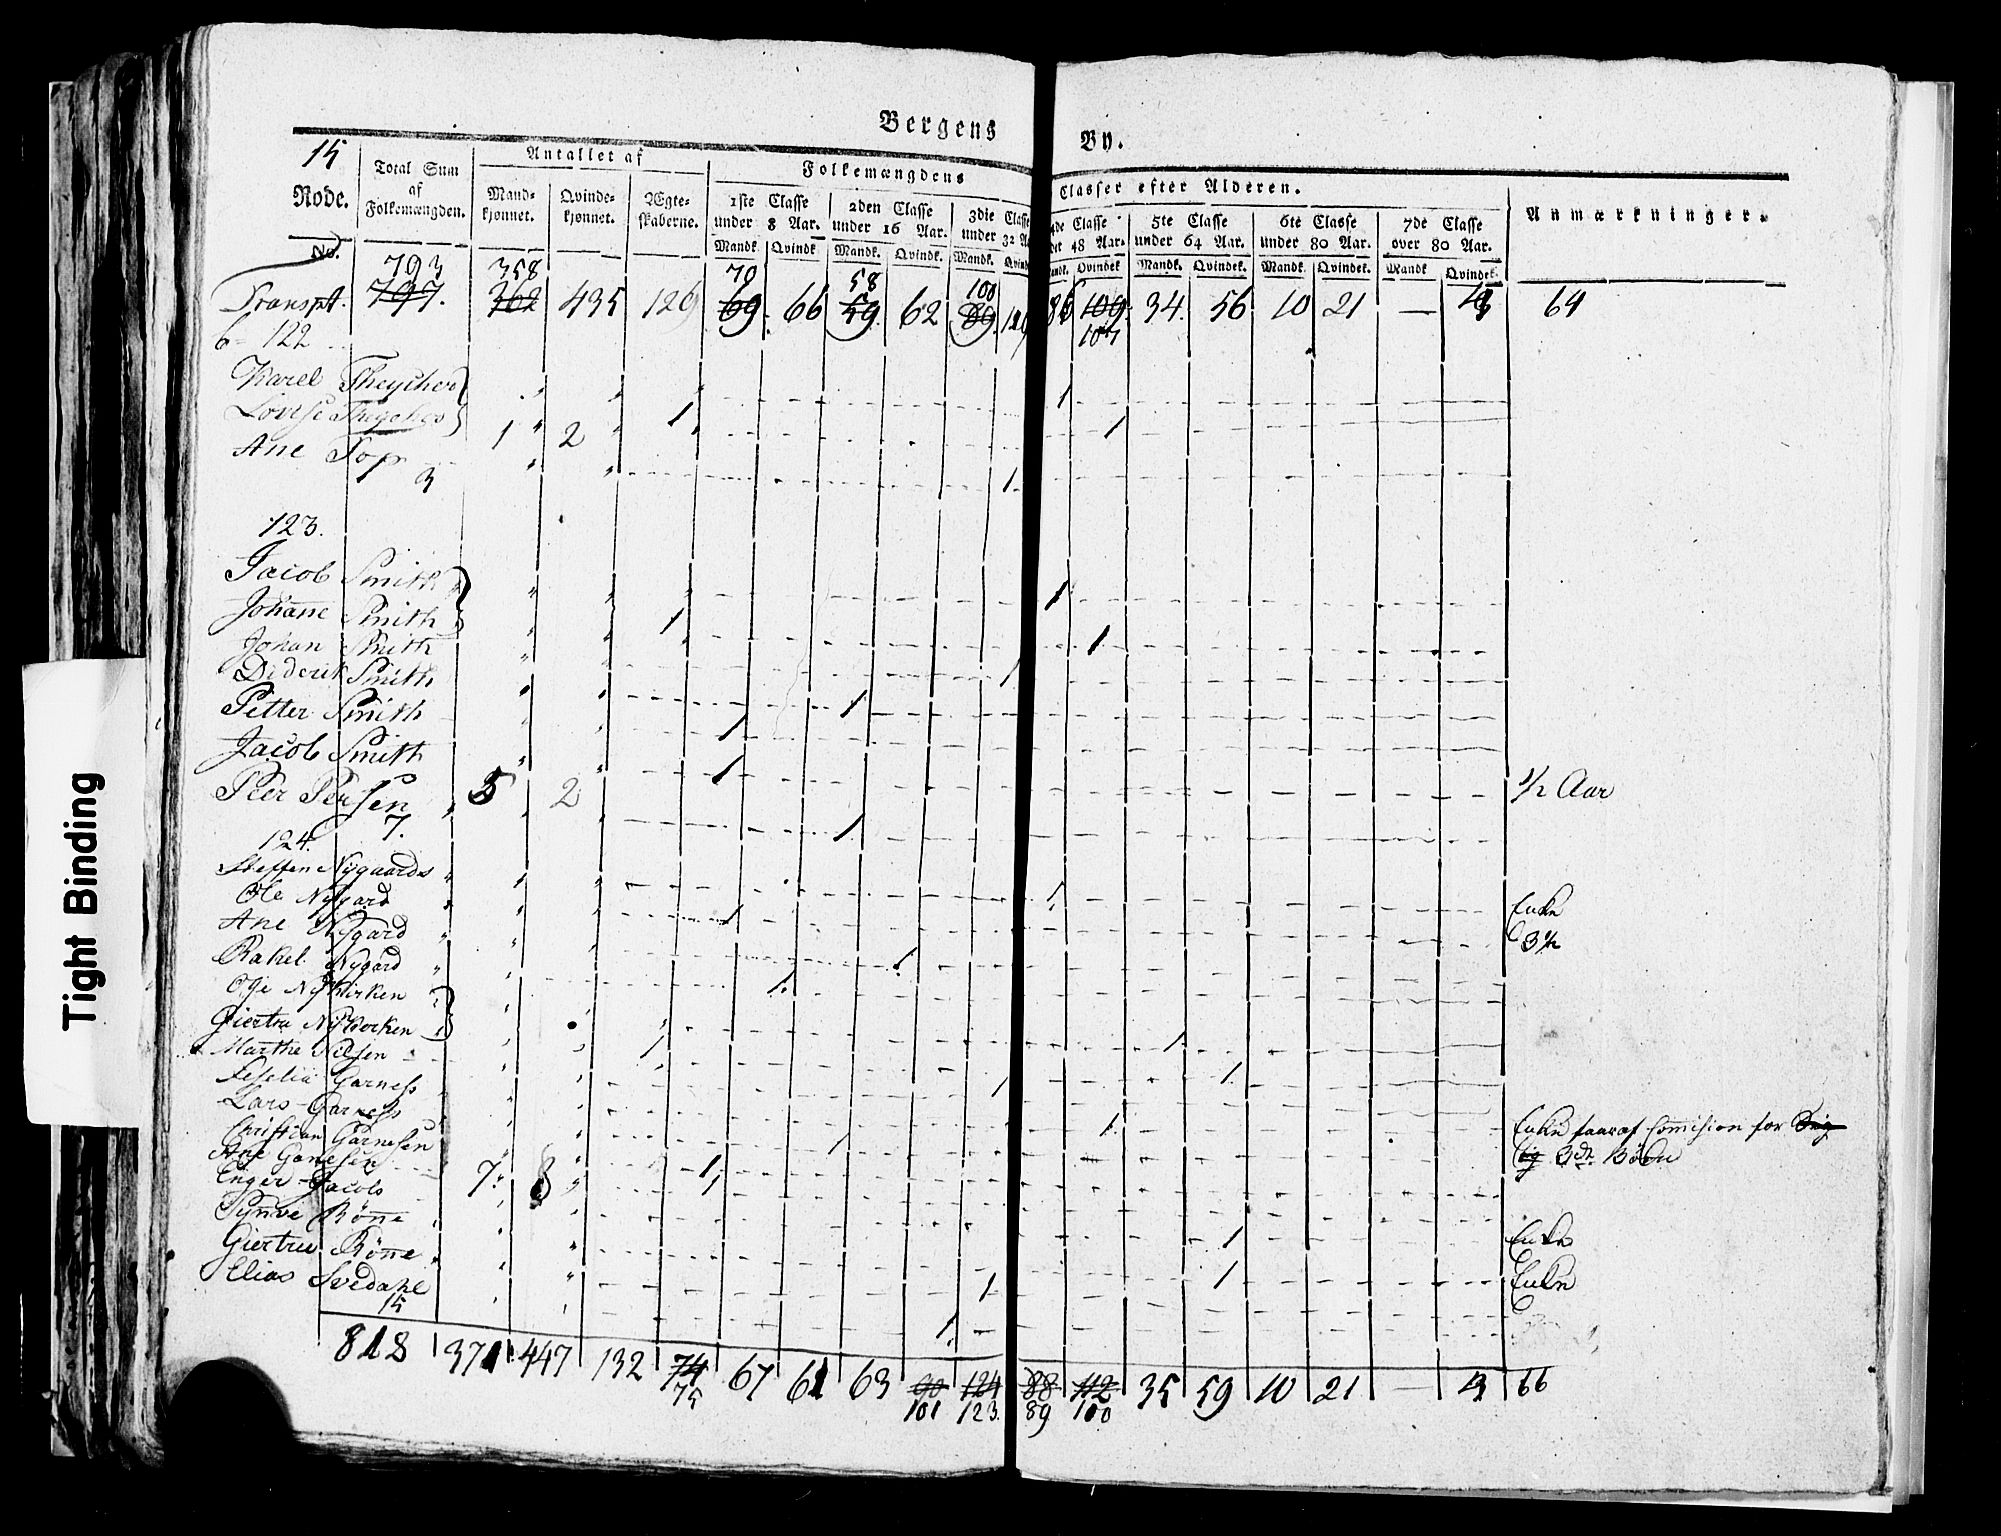 Bergens By.
15 Rode.
Total Sum af Folkemængden.
Antallet af
Mandkjønnet. Qvindekjønnet. Ægteskaberne.
Folkemængdens Classer efter Alderen.
1ste Classe under 8 Aar. 2den Classe under 16 Aar. 3die Classe under 32 Aar 4de Classe under 48 Aar. 5te Classe under 64 Aar. 6te Classe under 80 Aar. 7de Classe over 80 Aar.
Anmærkninger.
No. Mandk. Qvindk. Mandk. Qvindk. Mandk. Qvindk Mandk. Qvindek Mandk. Qvindek. Mandk. Qvindek. Mandk Qvindek.
793 358 70 58 100
Transpt. 797. 362 435 126 69 66 59 62 89 86 109 34. 56 10 21 — 64
107
6- 122
Karel Theycher 1
Lovise Theycher 1 1
Ane Top 1 2
3 1
123.
Jacob Smith 1
Johane Smith 1 1
Johan Smith 1
Diderik Smith 1
Petter Smith 1
Jacob Smith 1 1/2 Aar
Peer Persen 5 2 1
7.
124.
Steffen Nygaards 1 Enkn
Ole Nygard 1 3 1/2
Ane Nygard 1
Rakel Nygard 1
Oge Nykirken 1
Giertru Nykerken 1 1
Marthe Nilsen 1
Garness 1 Enkn for
Lars Garness 1 3de
Christian Garnesen 1
Ane Garnesen 1
Enger Jacobs 7. 8 1 Enkn
Synve Rône 1 Enkn
Giertru Rône 1
Elias Svedahl 1
15
818 371 447 132 74 67 61 63 90 124 88 112 35 59 10 21 — 3 66
75 101 123. 89 100
Tight Binding